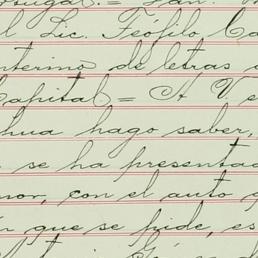 Portugal.= Jan.
l Lic. Teófilo Ca
nterino de letras
Capital= A Ve
hua hago saber,
se ha presentad
nor, con el auto
n que se pide, es